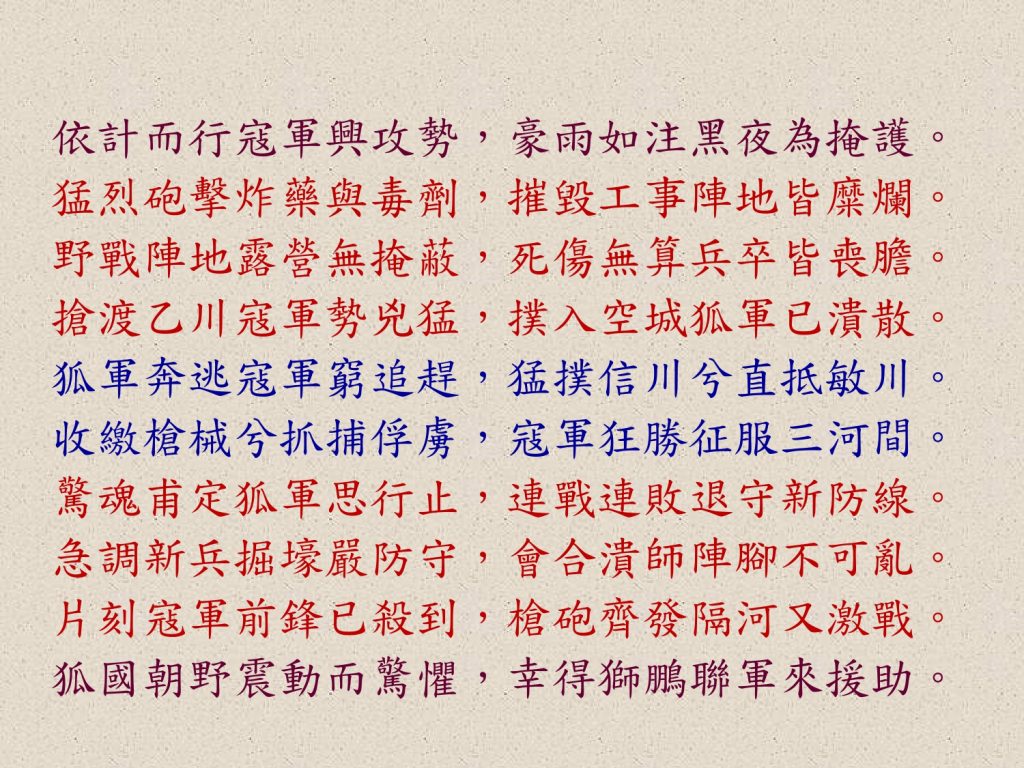 依計而行寇軍興攻勢，豪雨如注黑夜為掩護。
猛烈砲擊炸藥與毒劑，摧毀工事陣地皆糜爛。
野戰陣地露營無掩蔽，死傷無算兵卒皆喪膽。
搶渡乙川寇軍勢兇猛，撲入空城狐軍已潰散。
狐軍奔逃寇軍窮追趕，猛撲信川兮直抵敏川。
收繳槍械兮抓捕俘虜，寇軍狂勝征服三河間。
驚魂甫定狐軍思行止，連戰連敗退守新防線。
急調新兵掘壕嚴防守，會合潰師陣腳不可亂。
片刻寇軍前鋒已殺到，槍砲齊發隔河又激戰。
狐國朝野震動而驚懼，幸得獅鵬聯軍來援助。